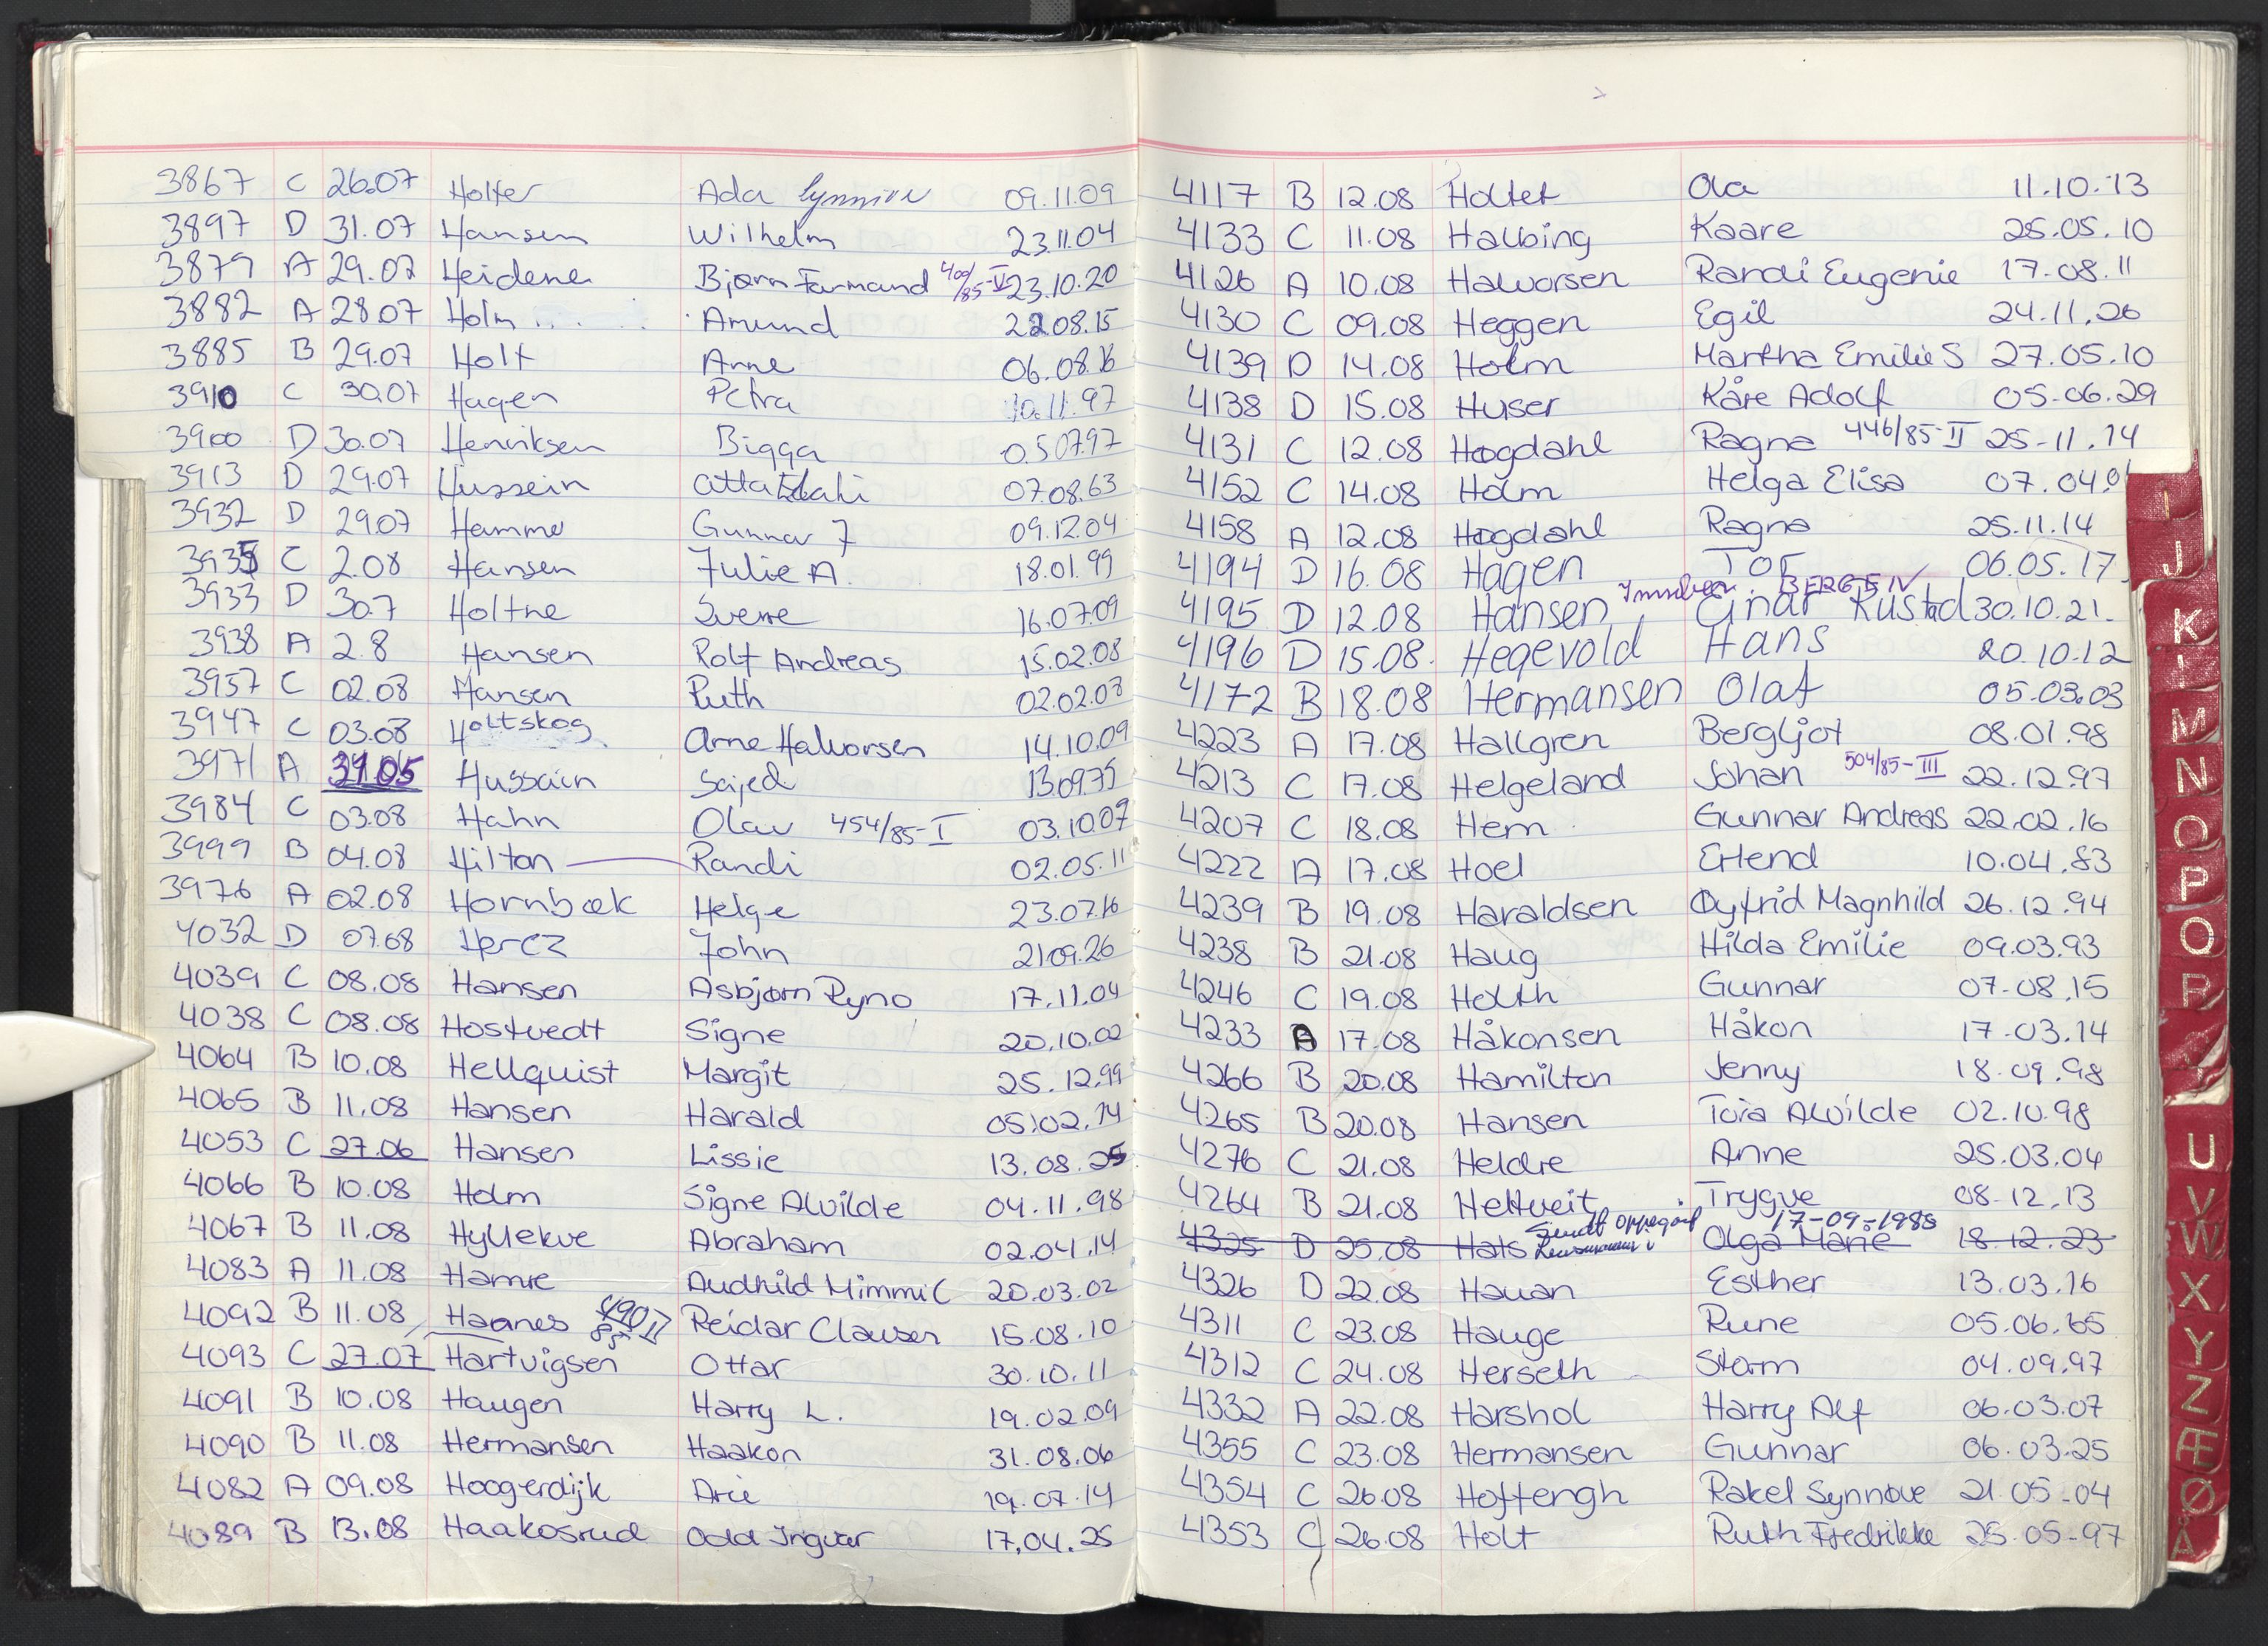 3867 C 26.07 Holter Ada Synnøve 09.11.09
3897 D 31.07 Hansen Wilhelm 23.11.04
3879 A 29.07 Heidene Bjørn Farmand 400/85-V 23.10.20
3882 A 28.07 Holm Amund 22.08.15
3885 B 29.07 Holt Anne 06.08.16
3910 C 30.07 Hagen Petra 10.11.97
3900 D 30.07 Henriksen Bigga 05.07.97
3913 D 29.07 Hussein Atta Elahi 07.08.63
3932 D 29.07 Hamme Gunnar J 09.12.04
3935 C 2.08 Hansen Julie A. 18.01.99
3933 D 30.7 Holtne Sverre 16.07.09
3938 A 2.8 Hansen Rolf Andreas 15.02.08
3957 C 02.08 Hansen Ruth 02.02.03
3947 C 03.08 Holtskog Arne Halvorsen 14.10.09
3971 A 31.05 Hussain Sajed 13.09.75
3984 C 03.08 Hahn Olav 454/85-I 03.10.07
3999 B 04.08 Hilton Randi 02.05.11
3976 A 02.08 Hornbæk Helge 23.07.16
4032 D 07.08 Hercz John 21.09.26
4039 C 08.08 Hansen Asbjørn Ryno 17.11.04
4038 C 08.08 Hostvedt Signe 20.10.02
4064 B 10.08 Hellquist Margit 25.12.99
4065 B 11.08 Hansen Harald 05.02.14
4053 C 27.06 Hansen Lissie 13.08.25
4066 B 10.08 Holm Signe Alvilde 04.11.98
4067 B 11.08 Hyllekve Abraham 02.04.14
4083 A 11.08 Hamre Audhild Mimmi C 20.03.02
4092 B 11.08 Haanes 490/85 II Reidar Clausen 15.08.10
4093 C 27.07 Hartvigsen Ottar 30.10.11
4091 B 10.08 Haugen Harry L. 19.02.09
4090 B 11.08 Hermansen Haakon 31.08.06
4082 A 09.08 Hoogerdijk Arie 19.07.14
4089 B 13.08 Haakosrud Odd Ingvar 17.04.25
4117 B 12.08 Holtet Ola 11.10.13
4133 C 11.08 Halbing Kaare 25.05.10
4126 A 10.08 Halvorsen Randi Eugenie 17.08.11
4130 C 09.08 Heggen Egil 24.11.26
4139 D 14.08 Holm Martha Emilie S 27.05.10
4138 D 15.08 Huser Kåre Adolf 05-06.29
4131 C 12.08 Høgdahl Ragna 446/85-II 25-11.14
4152 C 14.08 Holm Helga Elisa 07.04.01
4158 A 12.08 Høgdahl Ragna 25.11.14
4194 D 16.08 Hagen Tor 06.05.17
BERGE IV
4195 D 12.08 Hansen Einar Rustad 30.10.21.
4196 D 15.08. Hegevold Hans 20.10.12
4172 B 18.08 Hermansen Olaf 05.03.03
4223 A 17.08 Hallgren Bergljot 08.01.98
4213 C 17.08 Helgeland Johan 504/85-III 22.12.97
4207 C 18.08 Hem Gunnar Andreas 22.02.16
4222 A 17.08 Hoel Erlend 10.04.83
4239 B 19.08 Haraldsen Øyfrid Magnhild 26.12.94
4238 B 21.08 Haug Hilda Emilie 09.03.93
4246 C 19.08 Holth Gunnar 07-08.15
4233 A 17.08 Håkonsen Håkon 17-03.14
4266 B 20.08 Hamilton Jenny 18.09.98
4265 B 20.08 Hansen Tora Alvilde 02.10.98
4276 C 21.08 Heldre Anne 25.03.04
4264 B 21.08 Heltveit Trygve 08-12.13
Sendt Oppegård 17-09-1985
4325 D 25.08 Hals Olga Marie 18.12.23
4326 D 22.08 Hauan Esther 13.03.16
4311 C 23.08 Hauge Rune 05.06.65
4312 C 24.08 Herseth Storm 04.09.97
4332 A 22.08 Harshol Harry Alf 06.03.07
4355 C 23.08 Hermansen Gunnar 06.03.25
4354 C 26.08 Hoftengh Rakel Synnøve 21.05-04
4353 C 26.08 Holt Ruth Fredrikke 25.05-97
I
J
K
L
M
N
O
P
Q
R
U
V
W
X
Y
Z
Æ
Ø
Å